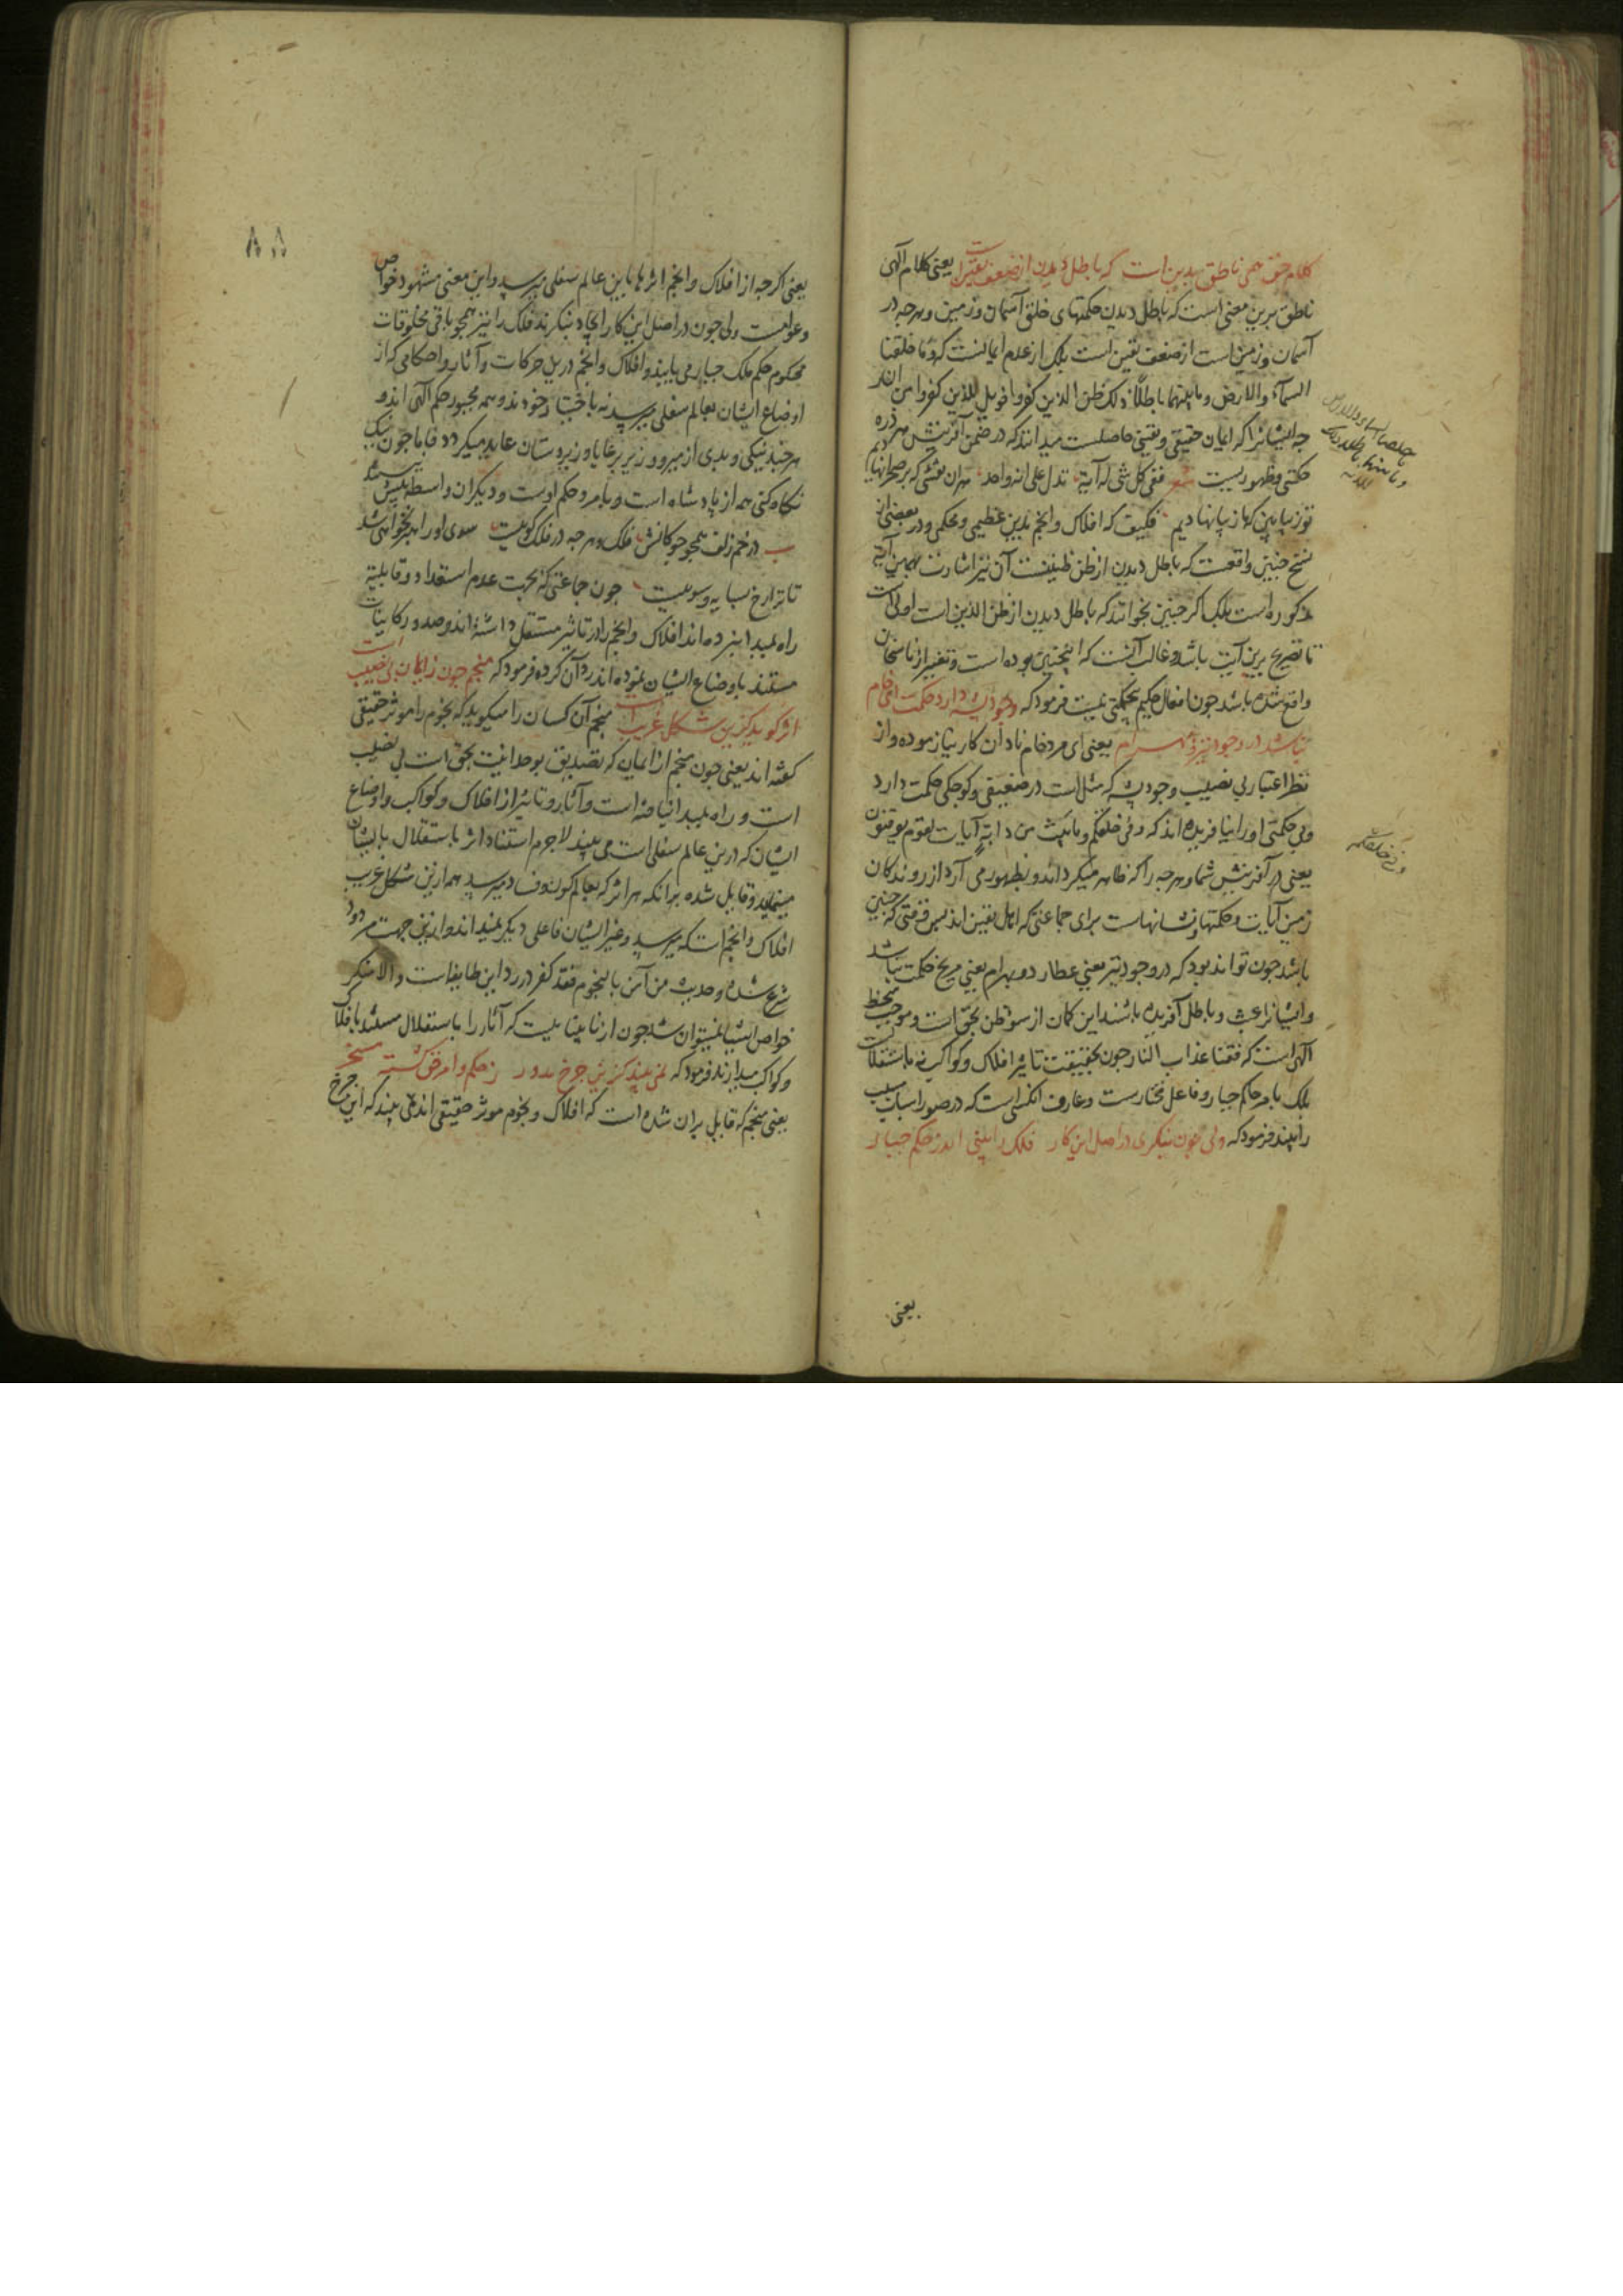 کلام حق همی ناطق بدین است که باطل دیدن از ضعف یقین است یعنی کلام الهی
ناطق برین معنی است که باطل دیدن حکمتهای خلق آسمان و زمین و هرچه در
آسمان و زمین است از ضعف یقین است بلک از عدم ایمانست که و ما خلقنا
السمآء والارض وما بینهما باطلا ذلک ظن الذین کفروا فویل للذین کفروا من النار
چه ایشانرا که ایمان حقیقی و یقینی حاصلست میدانند که در ضمن آفرینش هر ذره
حکمتی و ظهوریست شعر ففی کل شی له آیة تدل علی انه واحد
فکیف که افلاک و انجم بدین عظیمی و محکمی و در بعضی از
نسخ چنین واقعست که باطل دیدن از ظن آن نیز اشارت بهمین آیة
مذکوره است بلک اگر چنین بخوانند که باطل دیدن از ظن الذین است اولی است
تا تصریح برین آیت باشد و غالب آنست که اینچنین بوده است و تغییر از ناسخان
واقع شده باشد چون افعال حکیم بیحکمتی نیست فرمود که وجود پشه دارد حکمت ای خام
نباشد در وجود تیر و بهرام یعنی ای مرد خام نادان کار نیازموده و از
نظر اعتبار بی نصیب وجود پشه که مثل است در ضعیفی و کوچکی حکمت دارد
و بی حکمتی او را نیافریده اند که و فی خلقکم وما یبث من دابة آیات لقوم یوقنون
یعنی در آفرینش شما و هرچه را که ظاهر میگرداند و بظهور می آرد از روندکان
زمین آیات و حکمتها و نشانهاست برای جماعتی که اهل یقین اند پس وقتی که چنین
باشد چون تواند بود که در وجود تیر یعنی عطارد و بهرام یعنی مریخ حکمت نباشد
و ایشانرا عبث و باطل آفریده باشند این کمان از سوء ظن بحق است و موجب سخط
الهی است که فقنا عذاب النار چون بحقیقت تاثیر افلاک و کواکب نه باستقلالست
بلک بامر حاکم جبار و فاعل مختارست و عارف آنکسی است که در صور اسباب مسبب
را بیند فرمود که ولی چون بنکری در اصل این کار فلک را بینی اندر حکم جبار
یعنی
وفی خلقکم
۸۸
یعنی اکرچه از افلاک و انجم اثرها باین عالم سفلی میرسد و این معنی مشهود خواص
و عوامست ولی چون در اصل این کار ایجاد بنکرند فلک را نیز همچو باقی مخلوقات
محکوم حکم ملک جبار می یابند و افلاک و انجم درین حرکات و آثار و احکامی که از
اوضاع ایشان بعالم سفلی میرسد نه باختیار خودند و همه مجبور حکم الهی اند و
هر چند نیکی و بدی از میر و وزیر بر رعایا و زیردستان عاید میکردد فاما چون نیک
نکاه کنی همه از پادشاه است و بامر و حکم اوست و دیکران واسطه بیش نیستند
در خم زلف همچو چوکانش فلک و هرچه در فلک کویست سوی او راهبر نخواهی شد
تا ترا رخ بسایه و سویست چون جماعتی که بجهت عدم استعداد و قابلیة
راه بمبدا نبرده اند افلاک و انجم را در تاثیر مستقل داشته اند و صدور کاینات
مستند باوضاع ایشان نموده اند رد آن کرده فرمود که منجم چون ز ایمان بی نصیب است
اثر کوید کزین شکل غریب است منجم آن کسان را میکوید که نجوم را موثر حقیقی
کفته اند یعنی چون منجم از ایمان که تصدیق بوحدانیت حق است بی نصیب
است و راه بمبدا نیافته است و آثار و تاثیر از افلاک و کواکب و اوضاع
ایشان که درین عالم سفلی است می بیند لاجرم استناد اثر باستقلال بایشان
مینماید و قایل شده برانکه هر اثر که بعالم کون و فساد میرسد همه ازین شکل غریب
افلاک و انجم است که میرسد و غیر ایشان فاعلی دیکر نمیداند و ازین جهت مردود
شرع شده و حدیث من آمن بالنجوم فقد کفر در رد این طایفه است و الا منکر
خواص اشیا نمیتوان شد چون از نابینایی است که آثار را باستقلال مستند بافلاک
و کواکب میدارند فرمود که نمی بیند کزین چرخ مدور ز حکم و امر حق کشته مسخر
یعنی منجم که قایل بران شده است که افلاک و نجوم موثر حقیقی اند نمی بیند که این چرخ